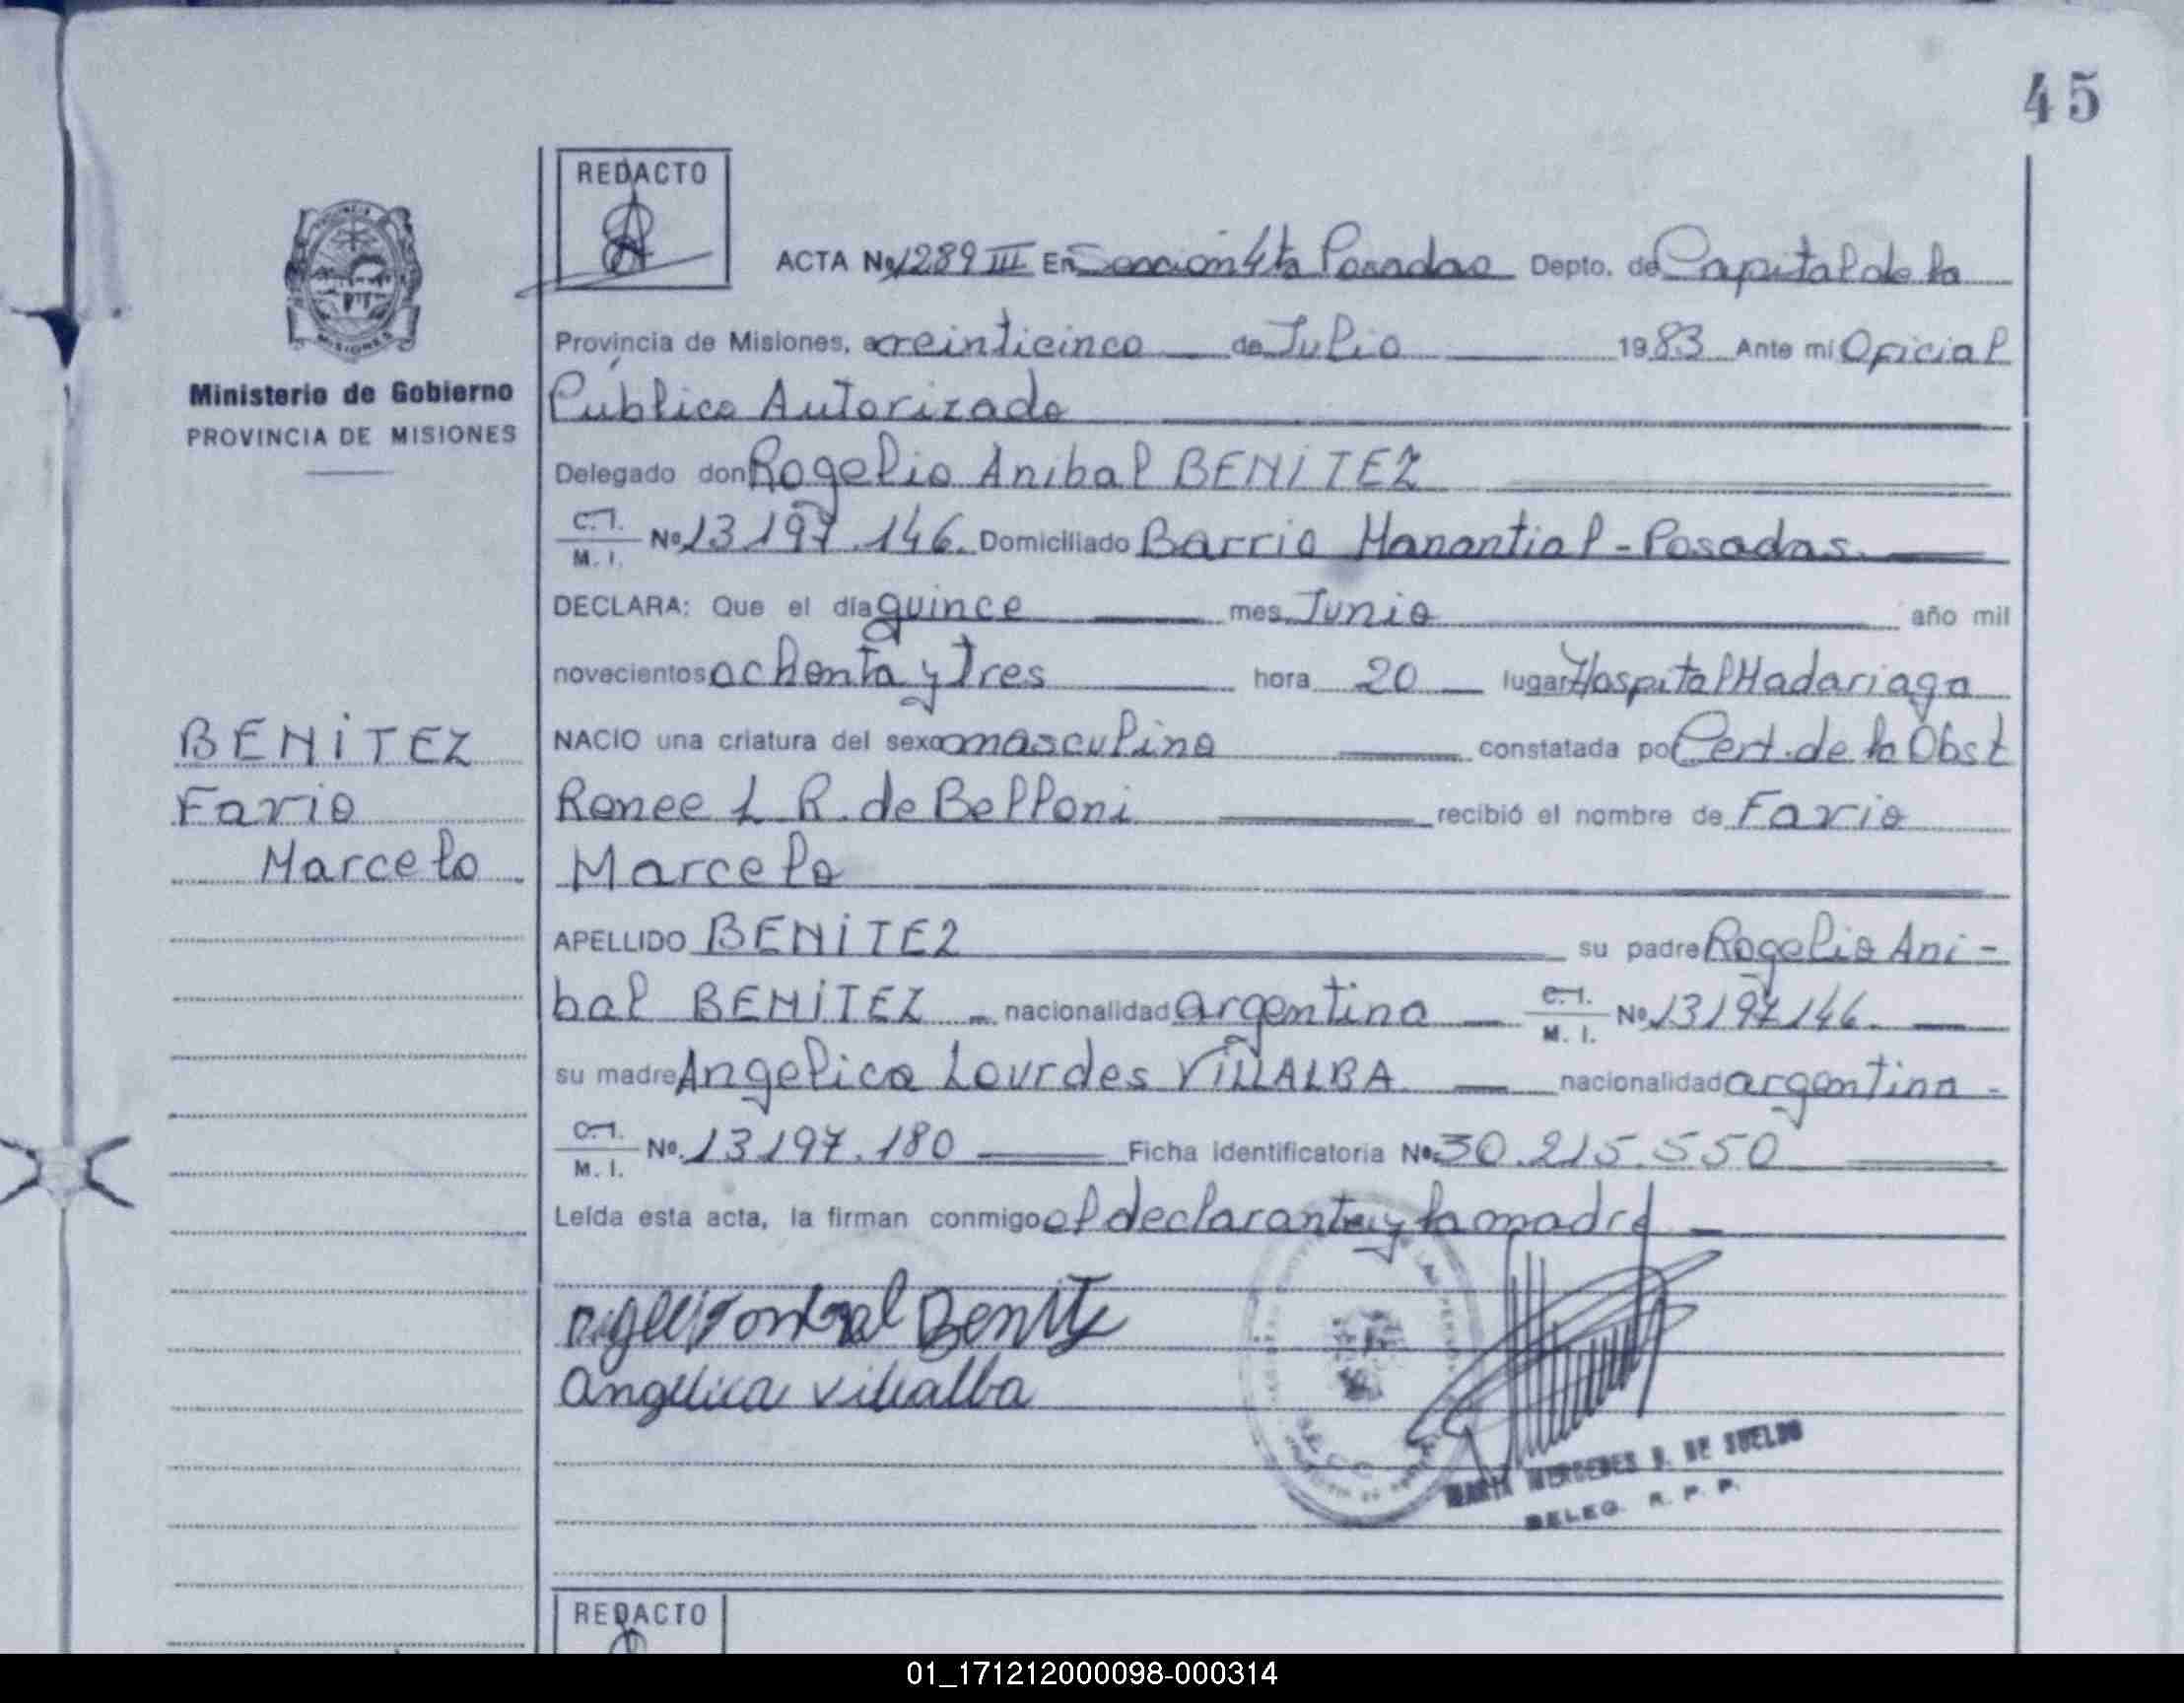 45
REDACTO
ACTA Nº 1289 III En Sección 4ta Posadas Depto. de Capital de la
Provincia de Misiones, a veinticinco de Julio 1983 Ante mi Oficial
Ministerio de Gobierno
PROVINCIA DE MISIONES
Público Autorizado
Delegado don Rogelio Anibal BENITEZ
C.I. M. I. Nº 13197.146. Domiciliado Barrio Manantial - Posadas.
DECLARA: Que el día quince mes Junio año mil
novecientos ochenta y tres hora 20 lugar Hospital Madariaga
BENITEZ
Favio
Marcelo
NACIO una criatura del sexo masculino constatada por Cert. de la Obst
Renee L R. de Belloni recibió el nombre de Favio
Marcelo
APELLIDO BENITEZ su padre Rogelio Ani-
bal BENITEZ - nacionalidad argentina C.I. M. I. Nº 13197146.
su madre Angelica Lourdes VILLALBA nacionalidad argentina -
C.I. M. I. Nº 13197.180 Ficha Identificatoria Nº 30.215.550
Leída esta acta, la firman conmigo el declarante y la madre
Benitez
Angelica Villalba
MARIA MERCEDES D. DE SUELDO
DELEG. R. P. P.
REDACTO
01_171212000098-000314